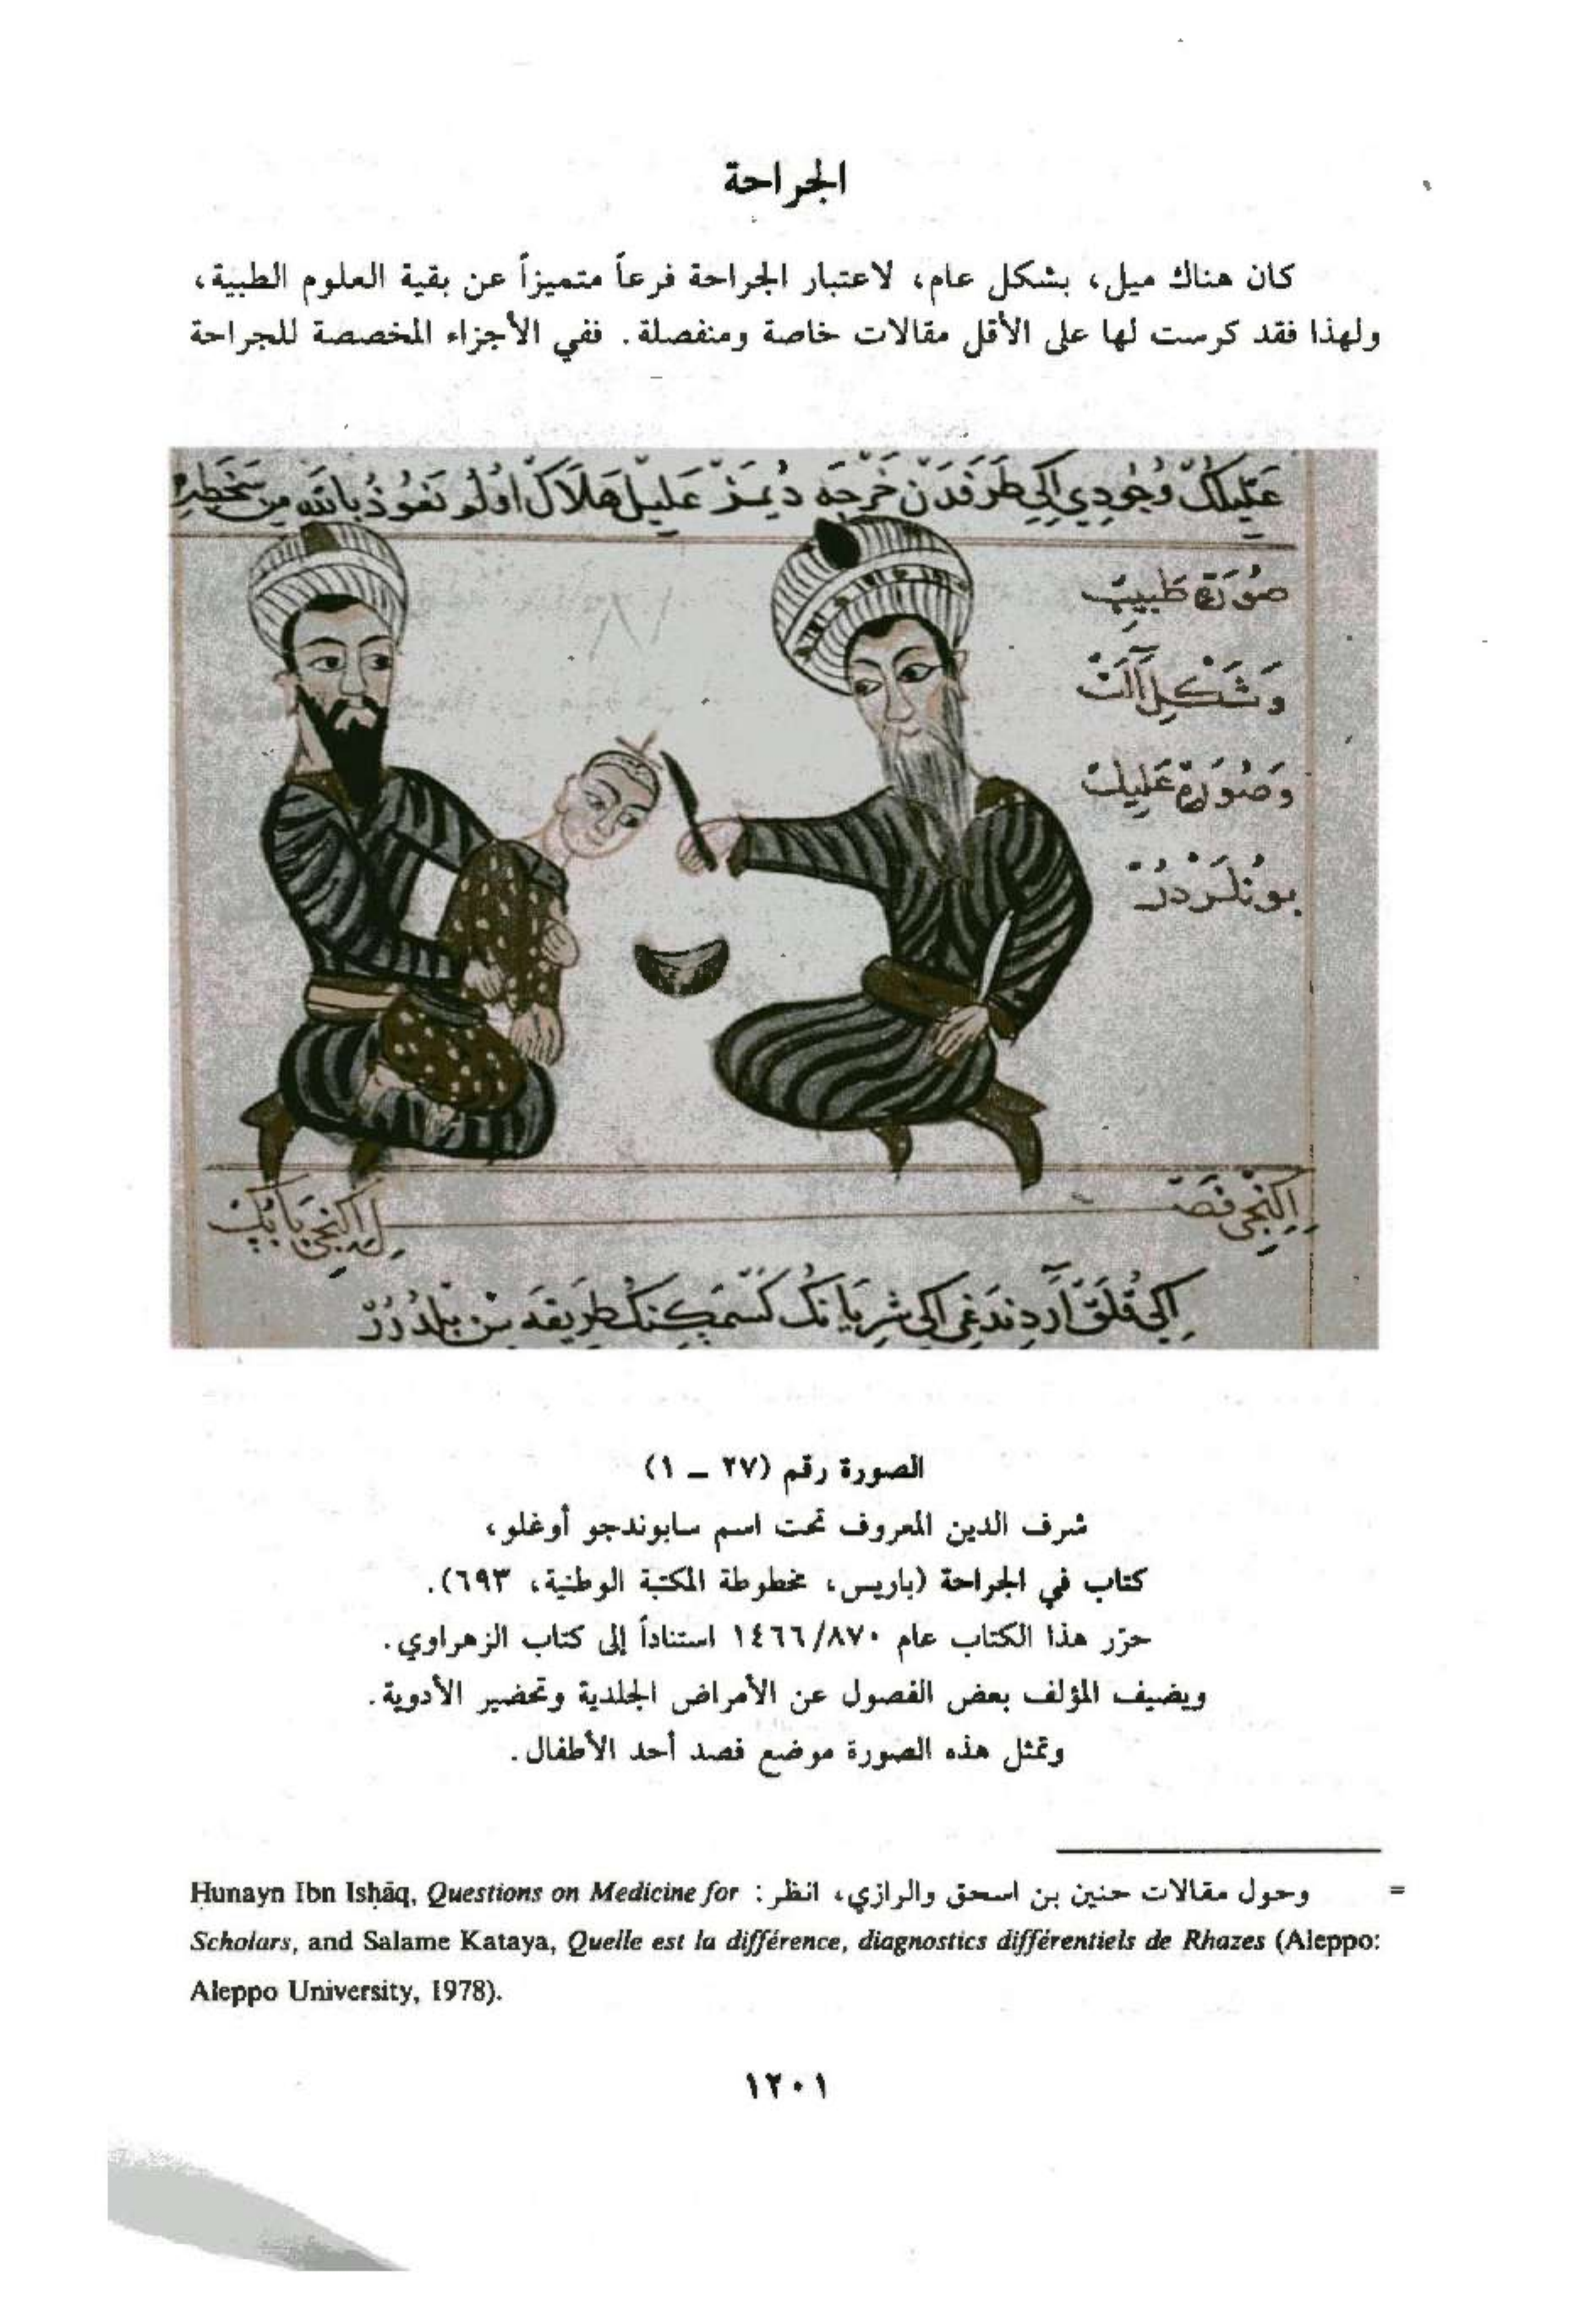 الجراحة
كان هناك ميل، بشكل عام، لاعتبار الجراحة فرعاً متميزاً عن بقية العلوم الطبية،
ولهذا فقد كرست لها على الأقل مقالات خاصة ومنفصلة. ففي الأجزاء المخصصة للجراحة
صُورَةِ طَبِيبْ
وَشَكْلِ آلَتْ
وَصُورَةِ عَلِيلْ
بُونْلَرْدُرْ
الصورة رقم (٢٧ - ١)
شرف الدين المعروف تحت اسم سابوندجو أوغلو،
كتاب في الجراحة (باريس، مخطوطة المكتبة الوطنية، ٦٩٣).
حرّر هذا الكتاب عام ٨٧٠/١٤٦٦ استناداً إلى كتاب الزهراوي.
ويضيف المؤلف بعض الفصول عن الأمراض الجلدية وتحضير الأدوية.
وتمثل هذه الصورة موضع فصد أحد الأطفال.
= وحول مقالات حنين بن اسحق والرازي، انظر: Hunayn Ibn Isḥāq, Questions on Medicine for
Scholars, and Salame Kataya, Quelle est la différence, diagnostics différentiels de Rhazes (Aleppo:
Aleppo University, 1978).
١٢٠١